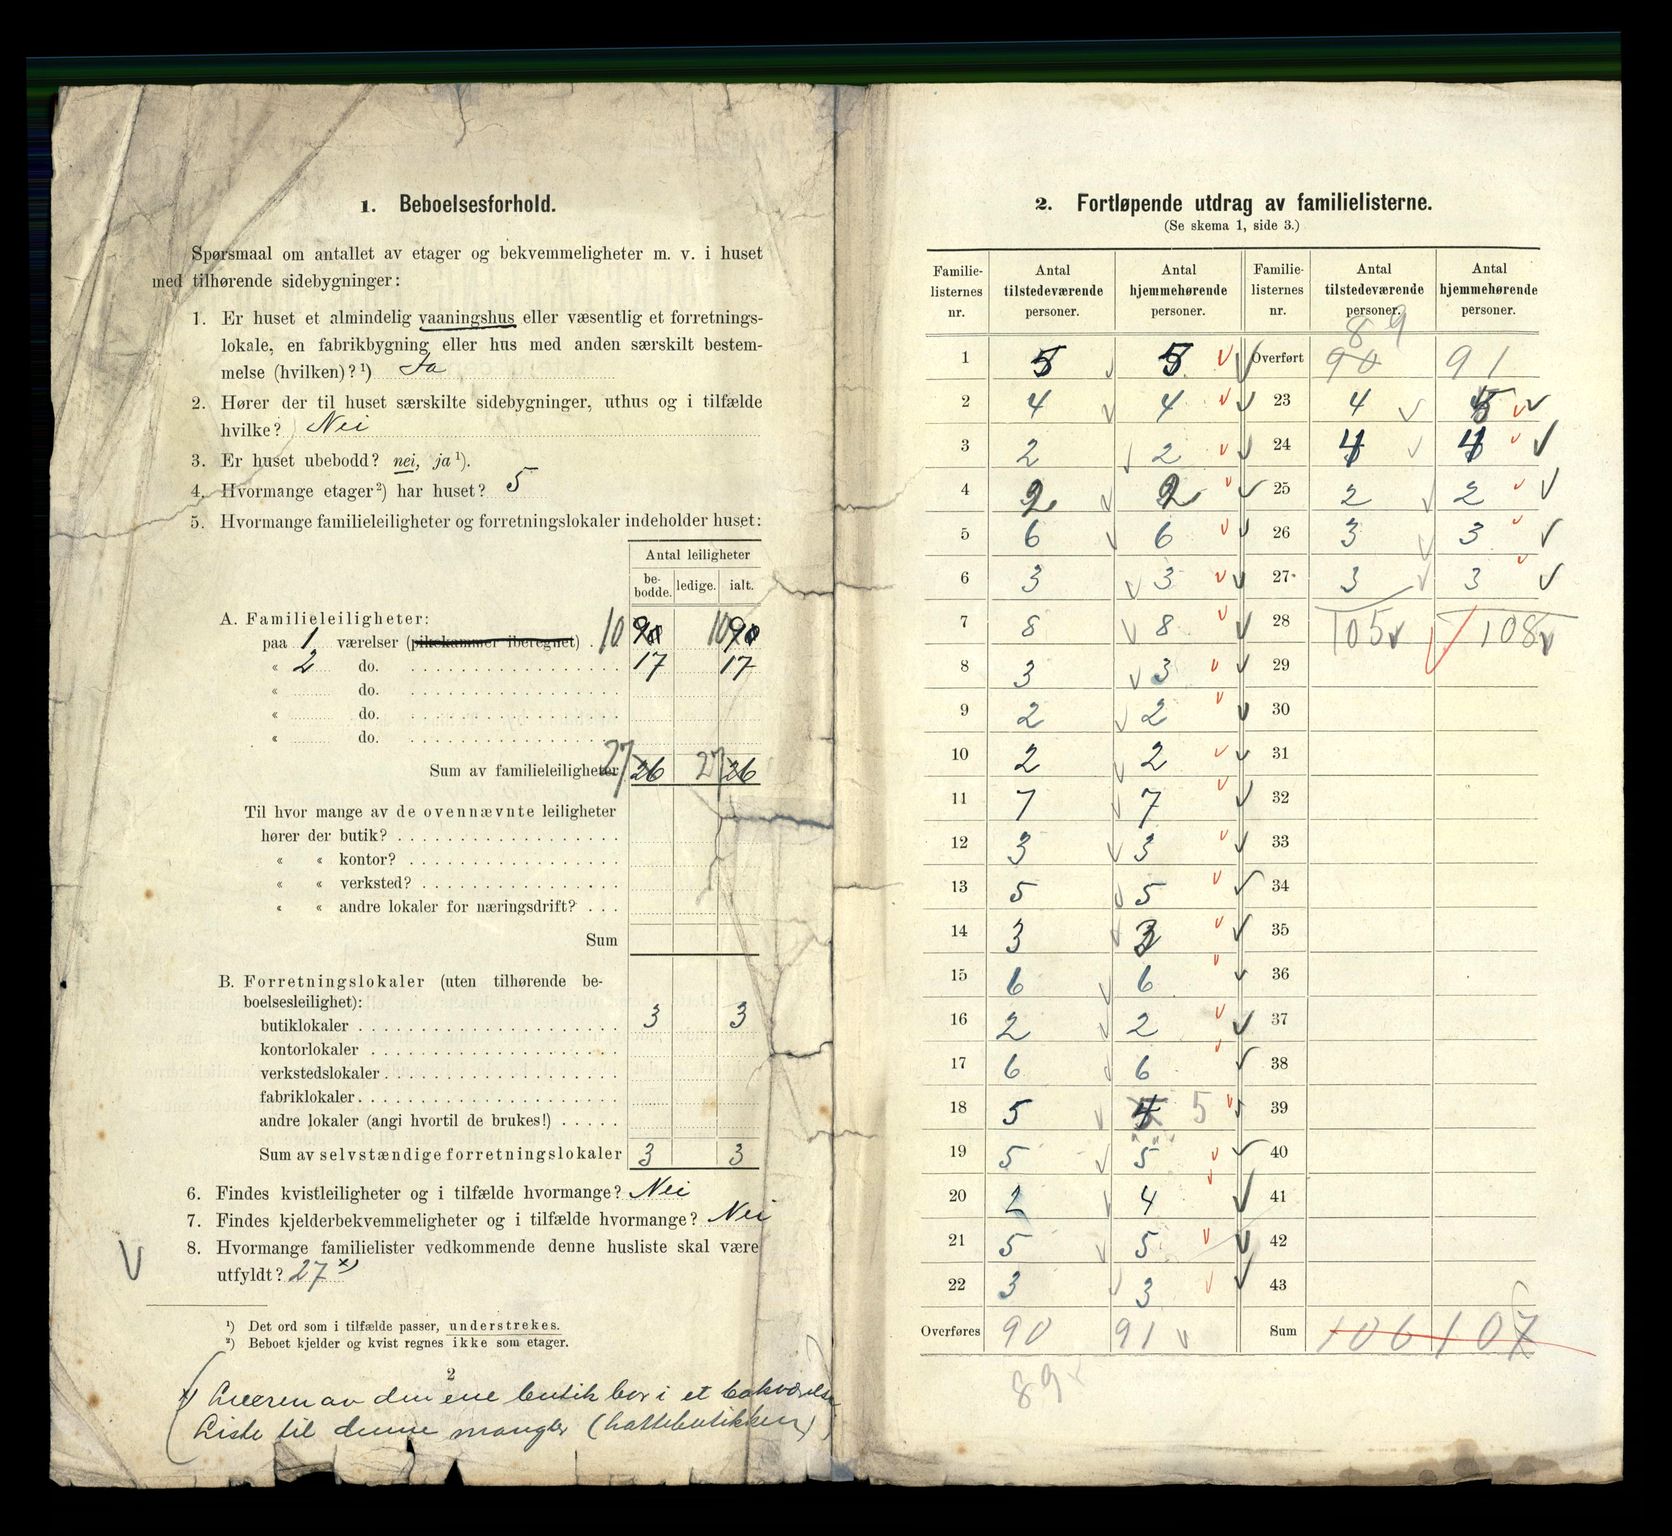 1. Beboelsesforhold.
Spørsmaal om antallet av etager og bekvemmeligheter m. v. i huset
med tilhørende sidebygninger:
1. Er huset et almindelig vaaningshus eller væsentlig et forretnings-
lokale, en fabrikbygning eller hus med anden særskilt bestem-
melse (hvilken)? ¹) Ja
2. Hører der til huset særskilte sidebygninger, uthus og i tilfælde
hvilke? Nei
3. Er huset ubebodd? nei, ja ¹).
4. Hvormange etager ²) har huset? 5
5. Hvormange familieleiligheter og forretningslokaler indeholder huset:
Antal leiligheter
be-
bodde. ledige. ialt.
A. Familieleiligheter:
paa 1 værelser (pikekammer iberegnet) . 10 10
« 2 do. 17 17
« do.
« do.
« do.
Sum av familieleiligheter 27 26 27 26
Til hvor mange av de ovennævnte leiligheter
hører der butik?
« « kontor?
« « verksted?
« « andre lokaler for næringsdrift?
Sum
B. Forretningslokaler (uten tilhørende be-
boelsesleilighet):
butiklokaler 3 3
kontorlokaler
verkstedslokaler
fabriklokaler
andre lokaler (angi hvortil de brukes!)
Sum av selvstændige forretningslokaler 3 3
6. Findes kvistleiligheter og i tilfælde hvormange? Nei
7. Findes kjelderbekvemmeligheter og i tilfælde hvormange? Nei
8. Hvormange familielister vedkommende denne husliste skal være
V utfyldt? 27 x)
¹) Det ord som i tilfælde passer, understrekes.
²) Beboet kjelder og kvist regnes ikke som etager.
2
x) av den ene butik bor i et bakværelse
Liste til denne mangler (hattebutikken)
2. Fortløpende utdrag av familielisterne.
(Se skema 1, side 3.)
Familie- Antal Antal Familie- Antal Antal
listernes tilstedeværende hjemmehørende listernes tilstedeværende hjemmehørende
nr. personer. personer. nr. personer. personer.
89
1 5 5 Overført 90 91
2 4 4 23 4 5
3 2 2 24 4 4
4 2 2 25 2 2
5 6 6 26 3 3
6 3 3 27 3 3
7 8 8 28 105 108
8 3 3 29
9 2 2 30
10 2 2 31
11 7 7 32
12 3 3 33
13 5 5 34
14 3 3 35
15 6 6 36
16 2 2 37
17 6 6 38
18 5 4 5 39
19 5 5 40
20 2 4 41
21 5 5 42
22 3 3 43
Overføres 90 91 Sum 106 107
89